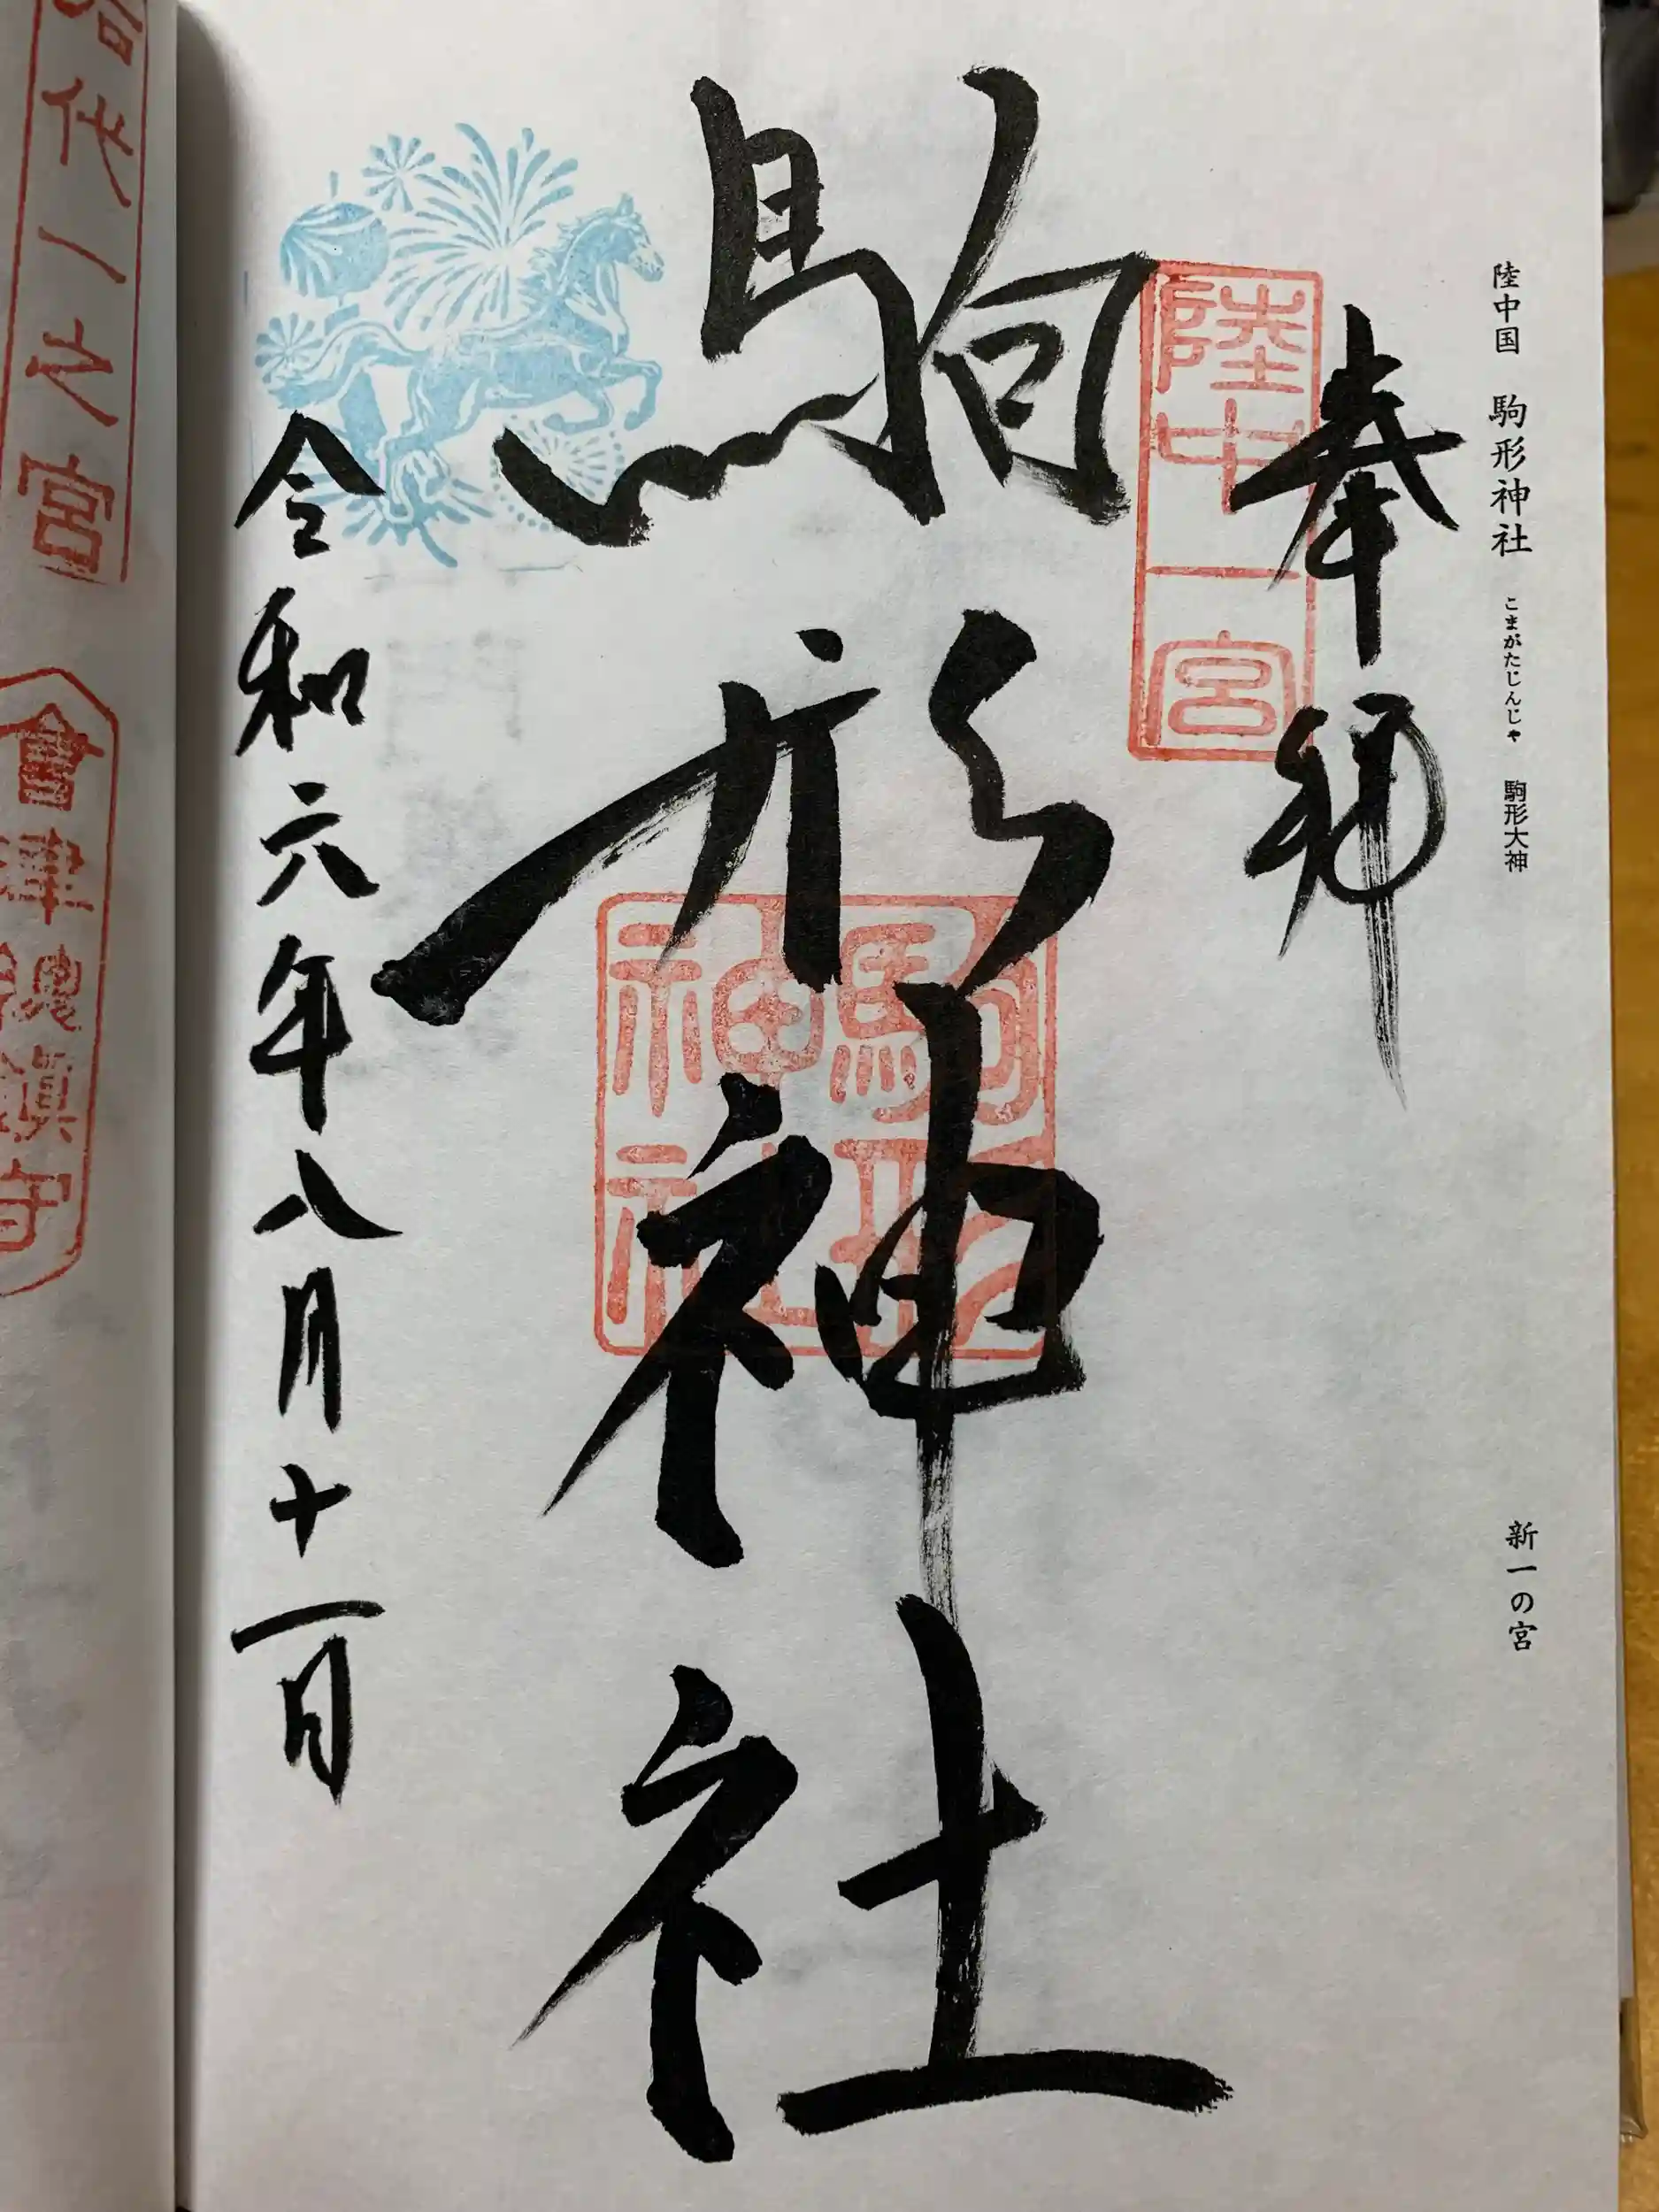 陸中国 駒形神社 こまがたじんじゃ 駒形大神
新一の宮
奉拝
陸中一宮
駒形神社
駒形神社
令和六年八月十一日
代一之宮
會津總鎮守